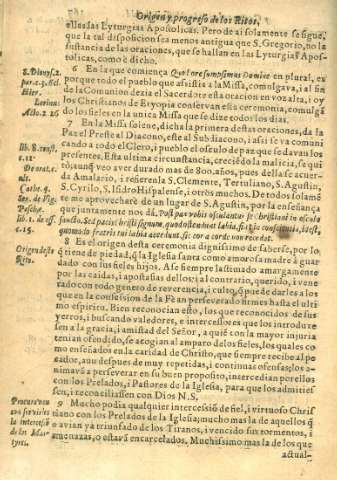 Origen, y progreso de los Ritos,
ellas las Lyturgias Apostolicas. Pero de ai solamente se sigue,
que la tal disposicion sea menos antigua que S. Gregorio, no la
sustancia de las oraciones, que se hallan en las Lyturgias Apos-
tolicas, como è dicho.
8. Dionys. 2.
6 En la que comiença Quod ore sumpsimus Domine en plural, es
porque todo el pueblo que assistia a la Missa, comulgava, i al fin
Hier.
de la Comunion dezia el Sacerdote esta oracion en voz alta, i oy
los Christianos de Etyopia conservan esta ceremonia, comulgã
do los fieles en la unica Missa que se dize todos los dias.
7 En la Missa solene, dicha la primera destas oraciones, da la
Paz el Preste al Diacono, este al Subdiacono, i assi se va comuni
cando a todo el Clero, i pueblo el osculo de paz que se davan los
presentes. Esta ultima circunstancia, creciêdo la malicia, se qui
tò, aunq̃ veo aver durado mas de 800. años, pues della se acuer-
da Amalario, i refieren la S. Clemente, Tertuliano, S. Agustin,
S. Cyrilo, S. Isidro Hispalense, i otros muchos. De todos solamẽ
te me aprovecharè de un lugar de S. Agustin, por la enseñança
que juntamente nos dà, Post pax vobis osculantur se Christiani in osculo
sancto.
c. 15.
quomodo fratris tui labia accedunt, sic cor a corde non recedat.
Origen deste
Rito.
8 Es el origen desta ceremonia dignissimo de saberse, por lo
q̃ tiene de piedad, q̃ la Iglesia santa como amorosa madre à guar
dado con sus fieles hijos. A se siempre lastimado amargamente
por las caidas, i apostasias dellos, i al contrario, querido, i vene
rado con todo genero de reverencia, i culto, q̃ puede darles a los
que en la confession de la Fè an perseverado firmes hasta el ulti
mo espiritu. Bien reconocian esto, los que reconocidos de sus
yerros, i buscando valedores, e intercessores que los introduxe
sen a la gracia, i amistad del Señor, a quiē con la mayor injuria
tenian ofendido, se acogian al amparo de los fieles, los quales co
mo enseñados en la caridad de Christo, que siempre recibe al pe
cador, aun despues de muy repetidas, i continuas ofensas, los a-
nimavã a perseverar en su buen proposito, intercedian por ellos
con los Prelados, i Pastores de la Iglesia, para que los admities
sen, i reconciliassen con Dios N.S.
Procuravan
con servicios
la intercessiõ
de los Mar
tyres.
9 Mucho podia qualquier intercessiõ de fiel, i virtuoso Chris
tiano con los Prelados de la Iglesia; mucho mas la de aquellos q̃
o avian ya triunfado de los Tiranos, i vencido sus tormentos, i
amenazas, o estavã encarcelados. Muchissimo mas la de los que
actual-